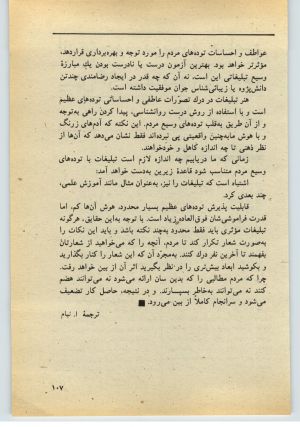 عواطف و احساسات توده‌های مردم را مورد توجه و بهره‌برداری قراردهد،
مؤثرتر خواهد بود. بهترین آزمون درست یا نادرست بودن یك مبارزهٔ
وسیع تبلیغاتی این است، نه آن که چه قدر در ایجاد رضامندی چندتن
دانش‌پژوه یا زیبائی‌شناس جوان موفقیت داشته است.
هنر تبلیغات در درك تصوّرات عاطفی و احساساتی توده‌های عظیم
است و با استفاده از روش درست روانشناسی، پیدا کردن راهی به‌توجه
و از آن طریق به‌قلب توده‌های وسیع مردم. این نکته که آدم‌های زرنگ
و با هوش ما به‌چنین واقعیتی پی نبرده‌اند فقط نشان می‌دهد که آن‌ها از
نظر ذهنی تا چه اندازه کاهل و خودخواهند.
زمانی که ما دریابیم چه اندازه لازم است تبلیغات با توده‌های
وسیع مردم متناسب شود قاعدهٔ زیرین به‌دست خواهد آمد:
اشتباه است که تبلیغات را نیز، به‌عنوان مثال مانند آموزش علمی،
چند بعدی کرد.
قابلیت پذیرش توده‌های عظیم بسیار محدود، هوش آن‌ها کم، اما
قدرت فراموشی‌شان فوق‌العاده زیاد است. با توجه به‌این حقایق، هرگونه
تبلیغات مؤثری باید فقط محدود به‌چند نکته باشد و باید این نکات را
به‌صورت شعار تکرار کند تا مردم، آنچه را که می‌خواهید از شعارتان
بفهمند تا آخرین نفر درك کنند. به‌مجرّد آن که این شعار را کنار بگذارید
و بکوشید ابعاد بیش‌تری را در نظر بگیرید اثر آن از بین خواهد رفت.
چرا که مردم مطالبی را که بدین سان ارائه می‌شود نه می‌توانند هضم
کنند نه می‌توانند به‌خاطر بسپارند. و در نتیجه، حاصل کار تضعیف
می‌شود و سرانجام کاملاً از بین می‌رود. ■
ترجمهٔ ا. نیام
۱۰۷